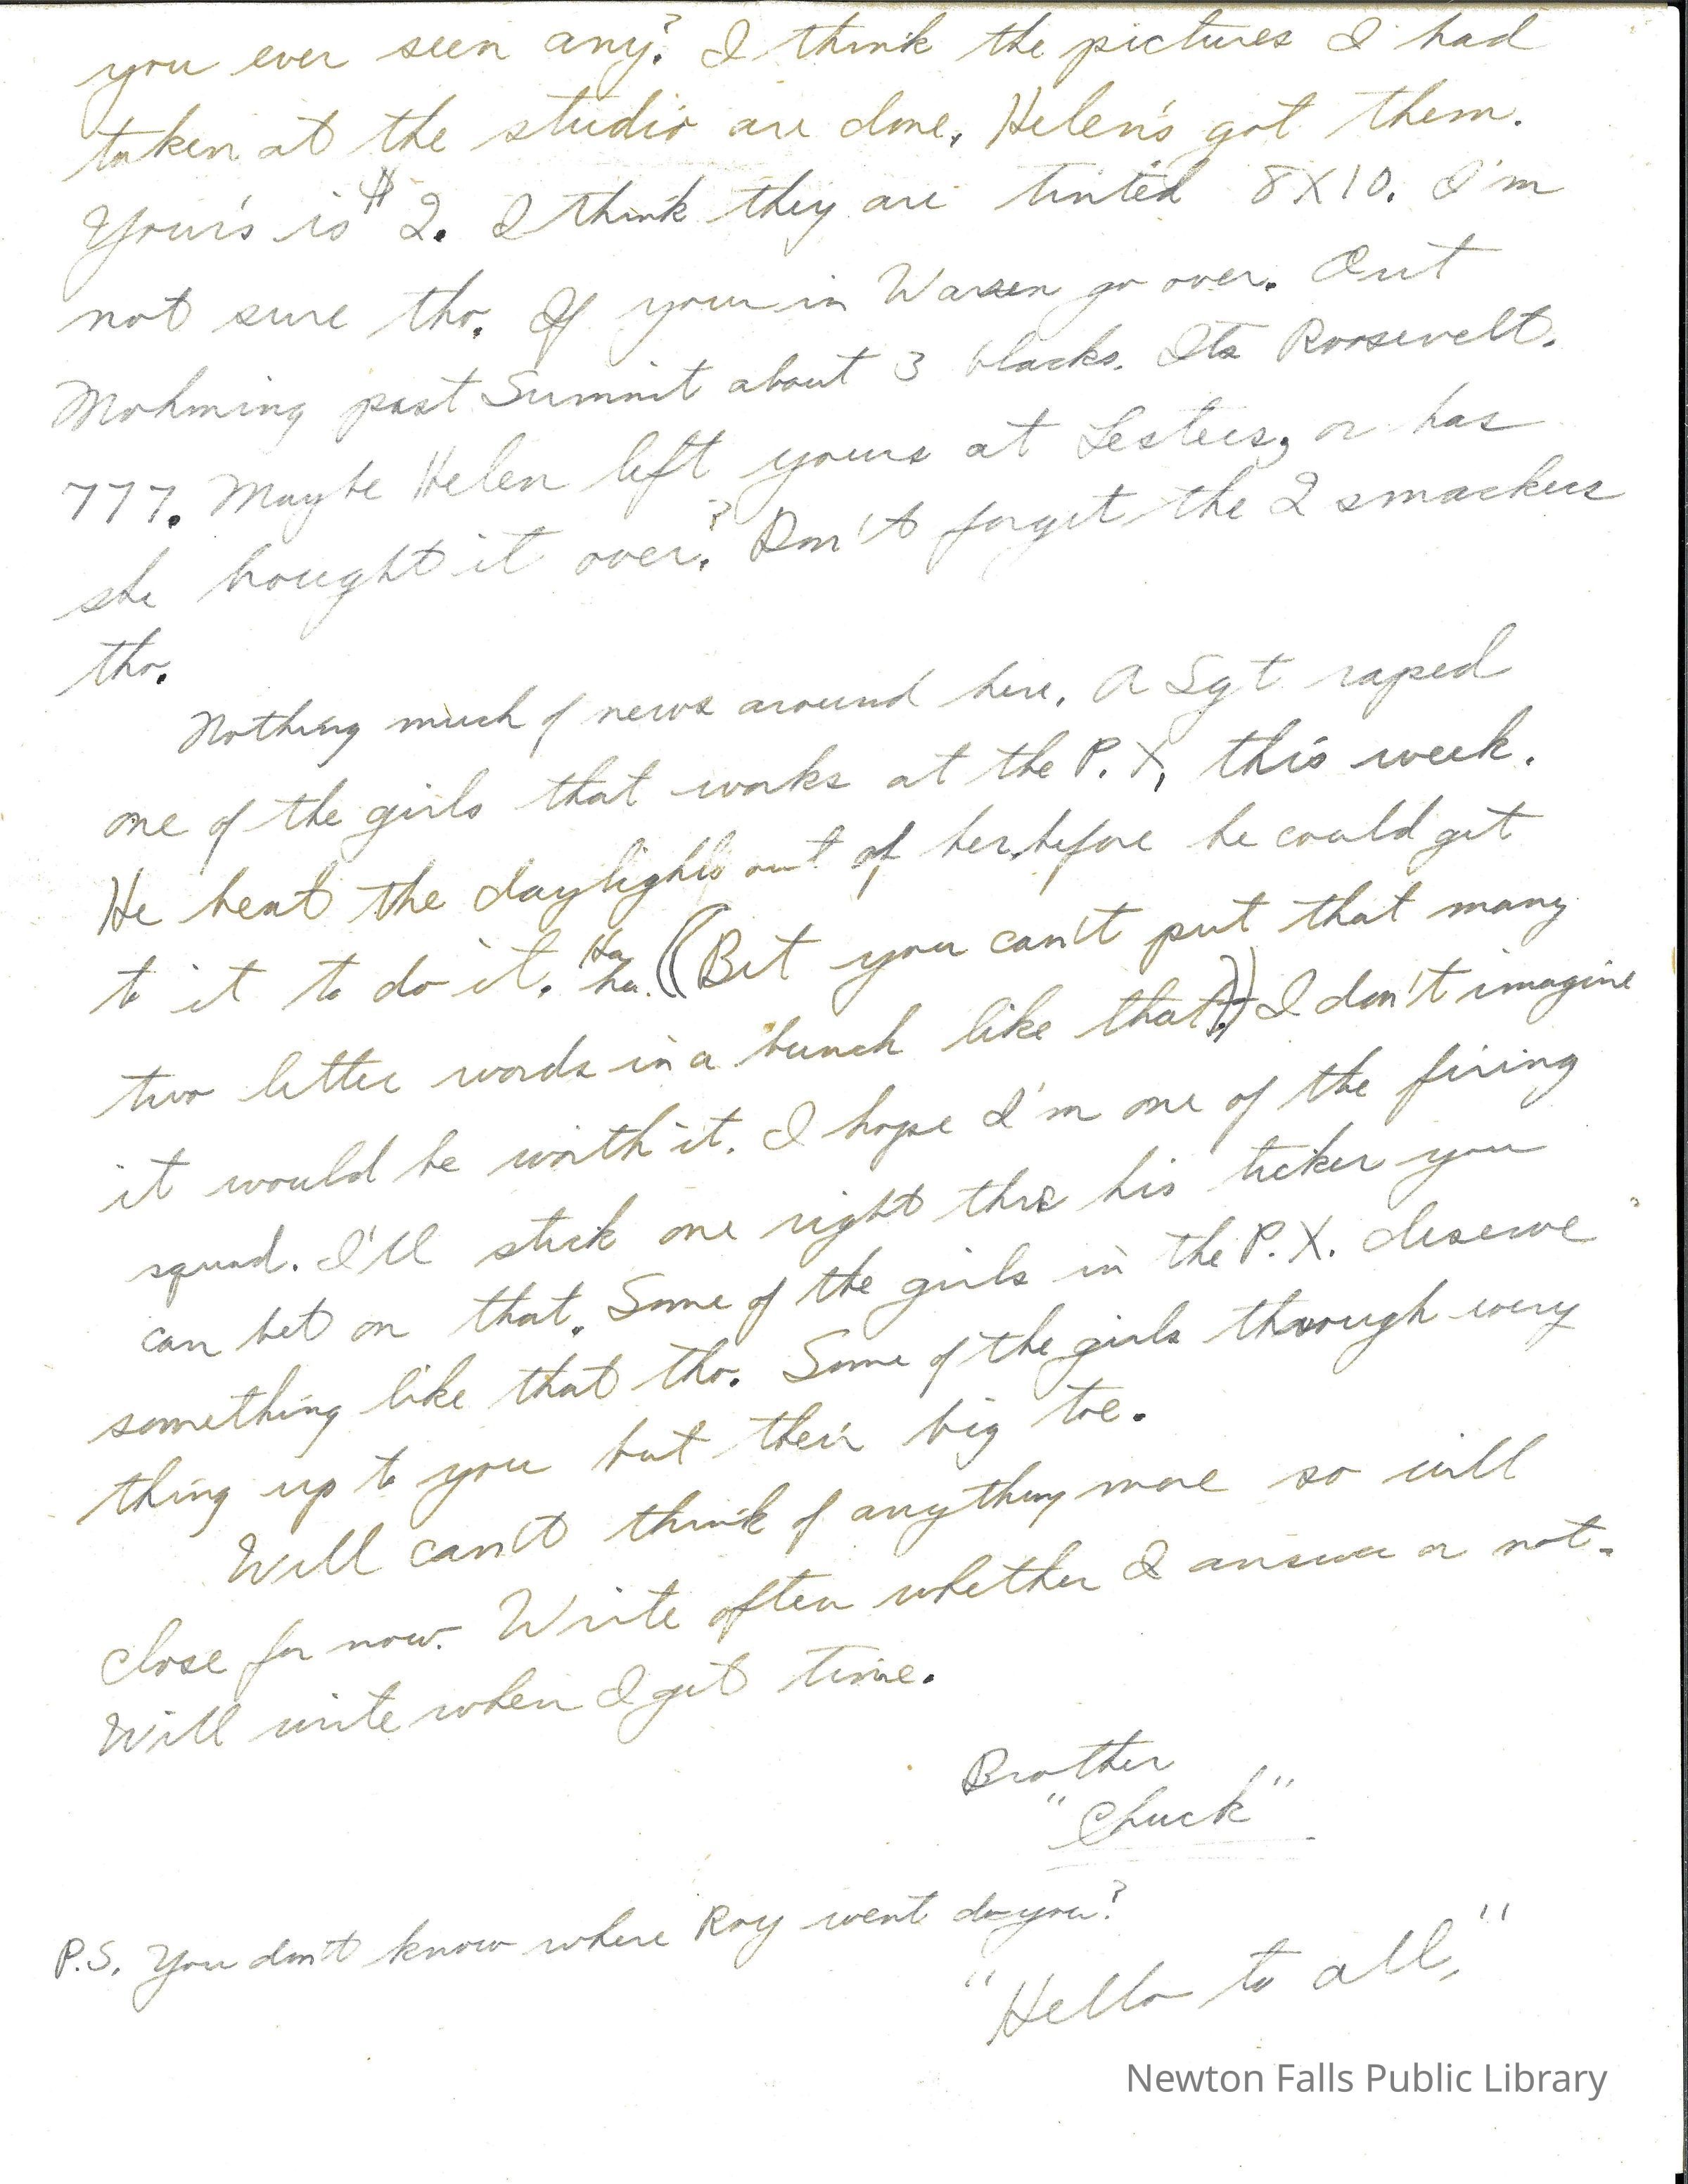 you ever seen any? I think the pictures I had
taken at the studio are done, Helen's got them.
Your's is $2. I think they are tinted 8X10. I'm
not sure tho. If your in Warren go over. Out
Mohming past Summit about 3 blocks. Its Roosevelt.
777. Maybe Helen left yours at Lesters, or has
she brought it over? Don't forget the 2 smackers
tho.
Nothing much of news around here. A Sgt raped
one of the girls that works at the P.X. this week.
He beat the daylights out of her before he could get
to it to do it. Ha ha. ((But you can't put that many
two letter words in a bunch like that.)) I don't imagine
it would be worth it. I hope I'm one of the firing
squad. I'll stick one right thre his ticker you
can bet on that. Some of the girls in the P.X. deserve
something like that tho. Some of the girls through every
thing up to you but their big toe.
Well can't think of anything more so will
close for now. Write often whether I answer or not.
Will write when I get time.
Brother
"Chuck"
P.S. You don't know where Roy went do you?
"Hello to all,"
Newton Falls Public Library